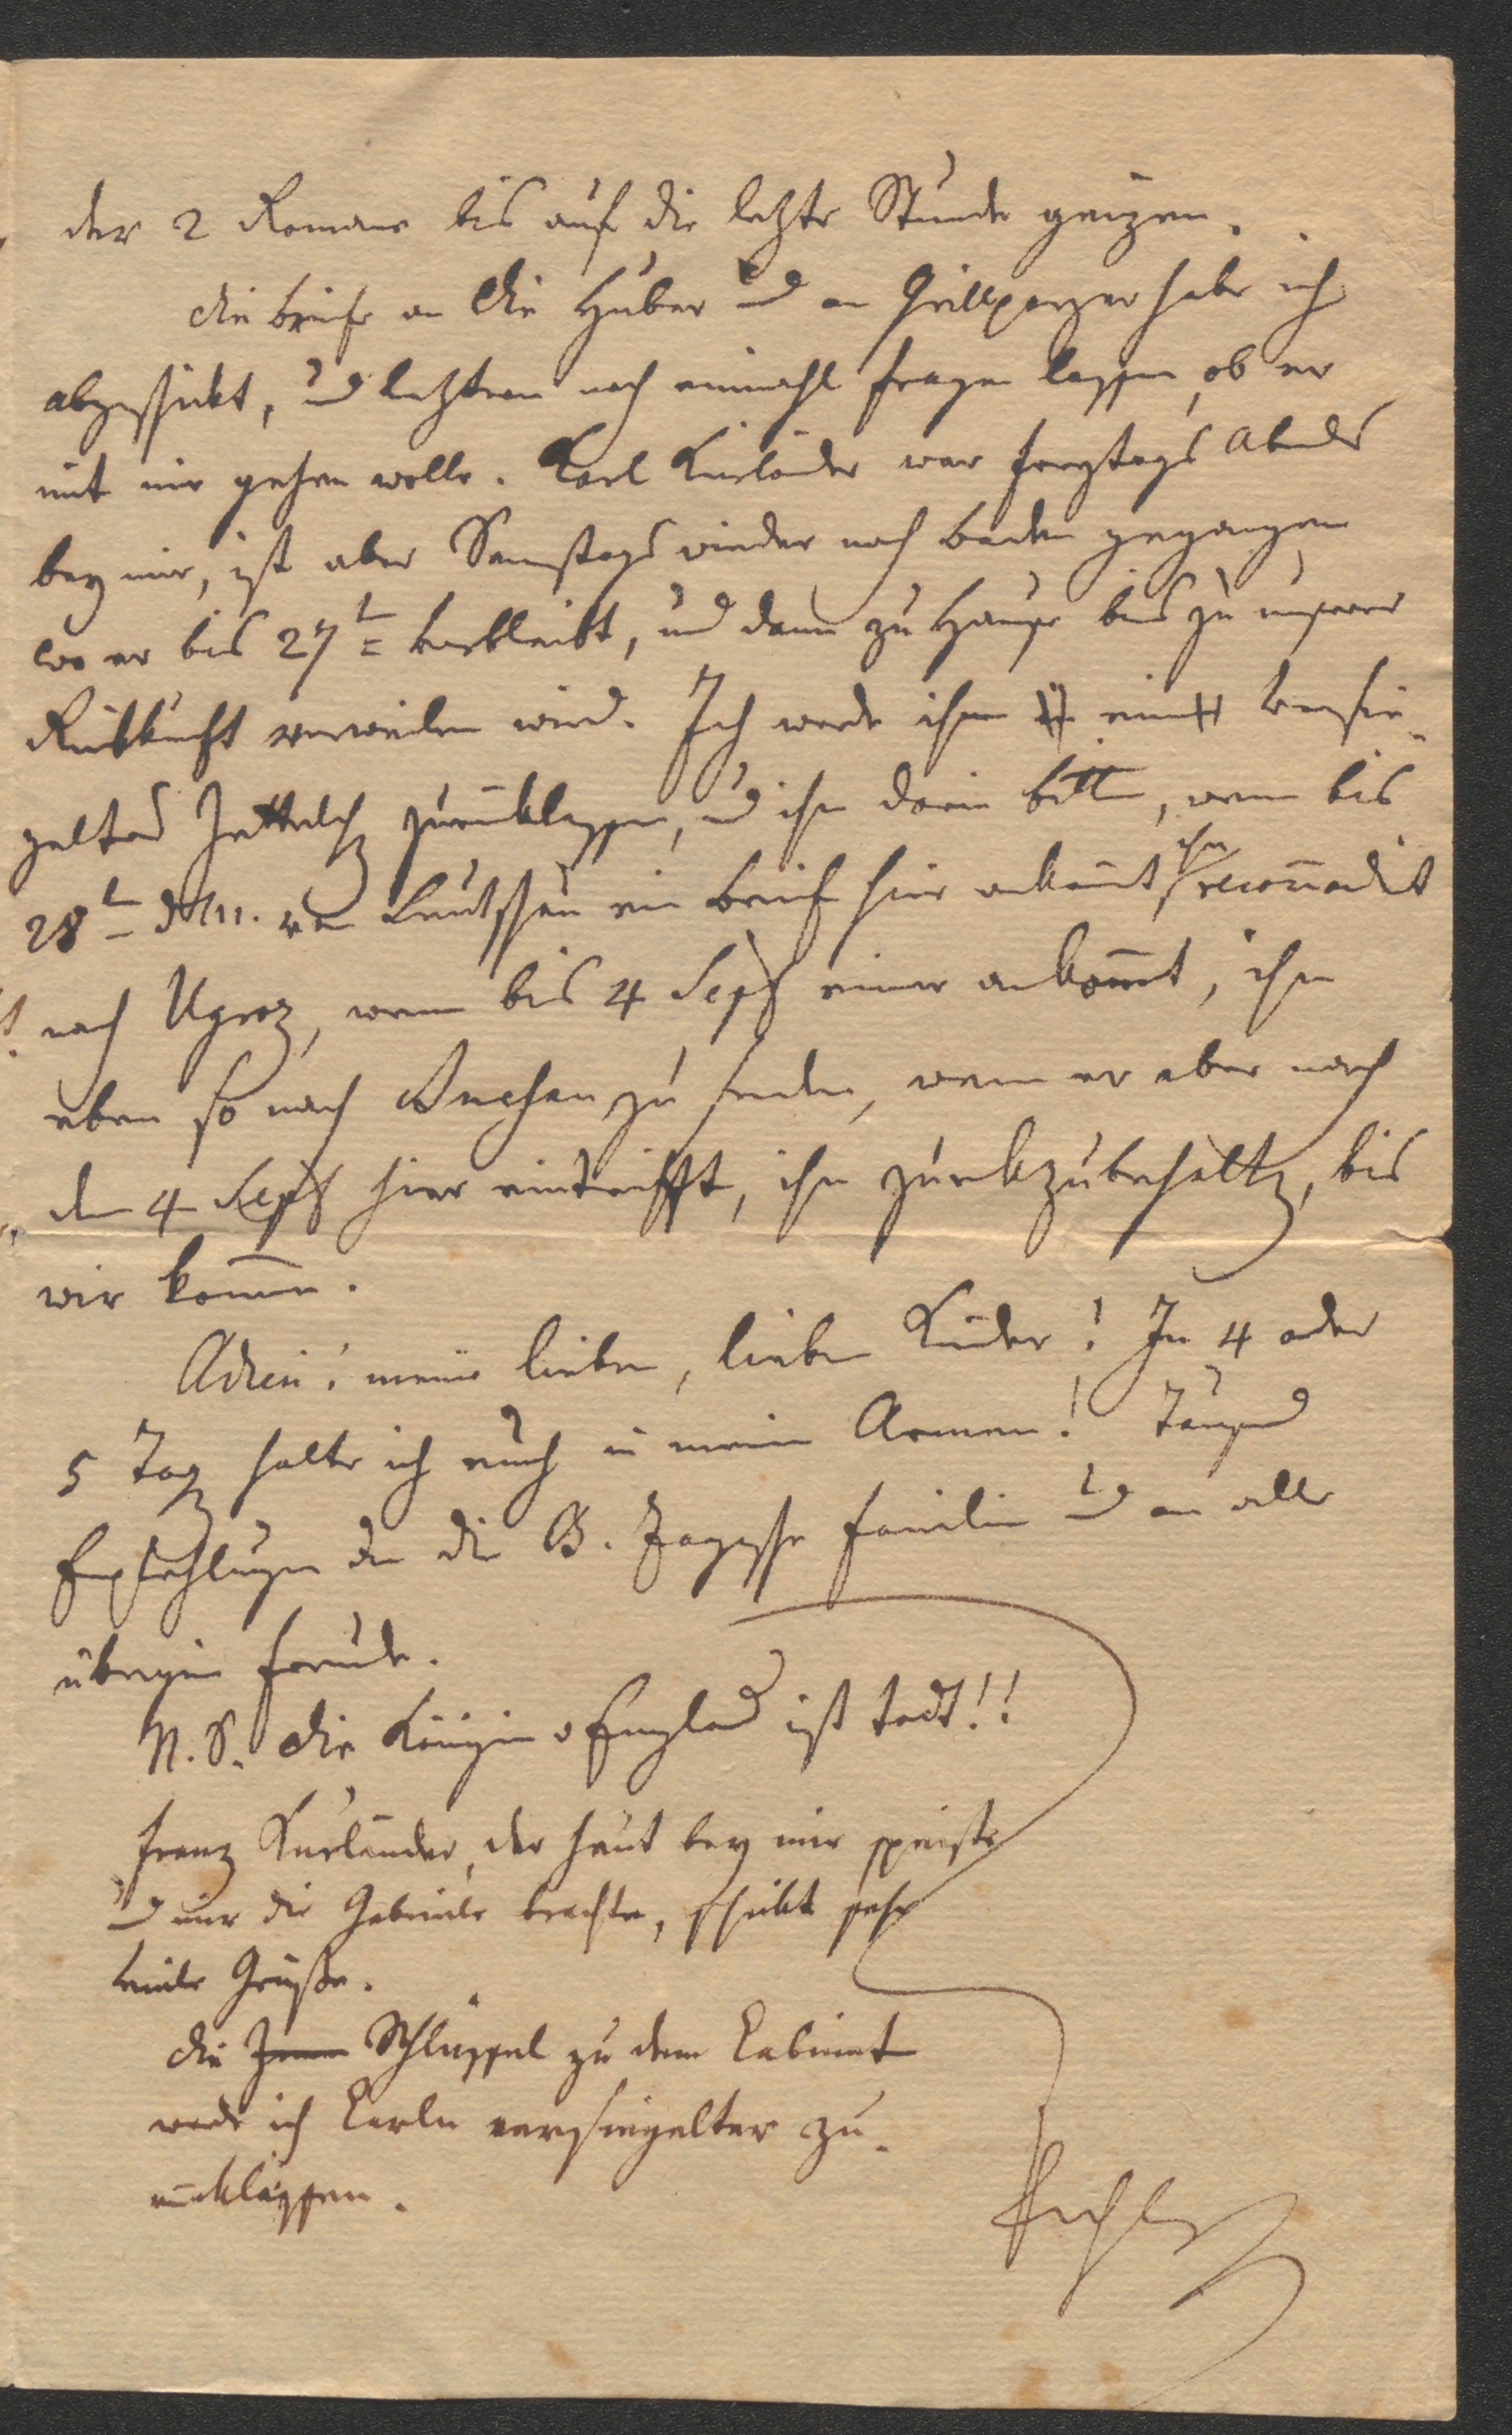 der 2 Romane bis auf die letzte Stunde geizen.
Die Briefe an die Huber und an Grillparzer habe ich
abgeschickt, und letztern noch einmahl fragen lassen, ob er
mit mir gehen wolle. Karl Kurländer war Freytags Abends
bey mir, ist aber Samstags wieder nach Baden gegangen
wo er bis 27t verbleibt, und dann zu Hause bis zu unserer
Rükkunft verweilen wird. Ich werde ihm ein versie-
geltes Zettelch zurücklassen, und ihn darin bitten, wenn bis
28t d. M. von Leutschau ein Brief hier ankom̄t, ihn recom̄andirt
nach Ugroz, wenn bis 4 Sept einer ankom̄t, ihn
eben so nach Buchan zu senden, wenn er aber nach
dem 4 Sept hier eintrifft, ihn zurükzubehalten, bis
wir kom̄en.
Adieu! meine lieben, lieben Kinder! In 4 oder
5 Tag halte ich euch in meinen Armen! Tausend
Empfehlungen an die B. Zaysche Familie und an alle
übrigen Freunde.
N. S. Die Königin v England ist todt!!
Franz Kurländer, der heut bey mir speiste
und mir die Gabriele brachte, schickt sehr
viele Grüße.
Die Schlüssel zu dem Cabinet
werde ich Carln versiegelter zu-
rücklassen.
Pichler